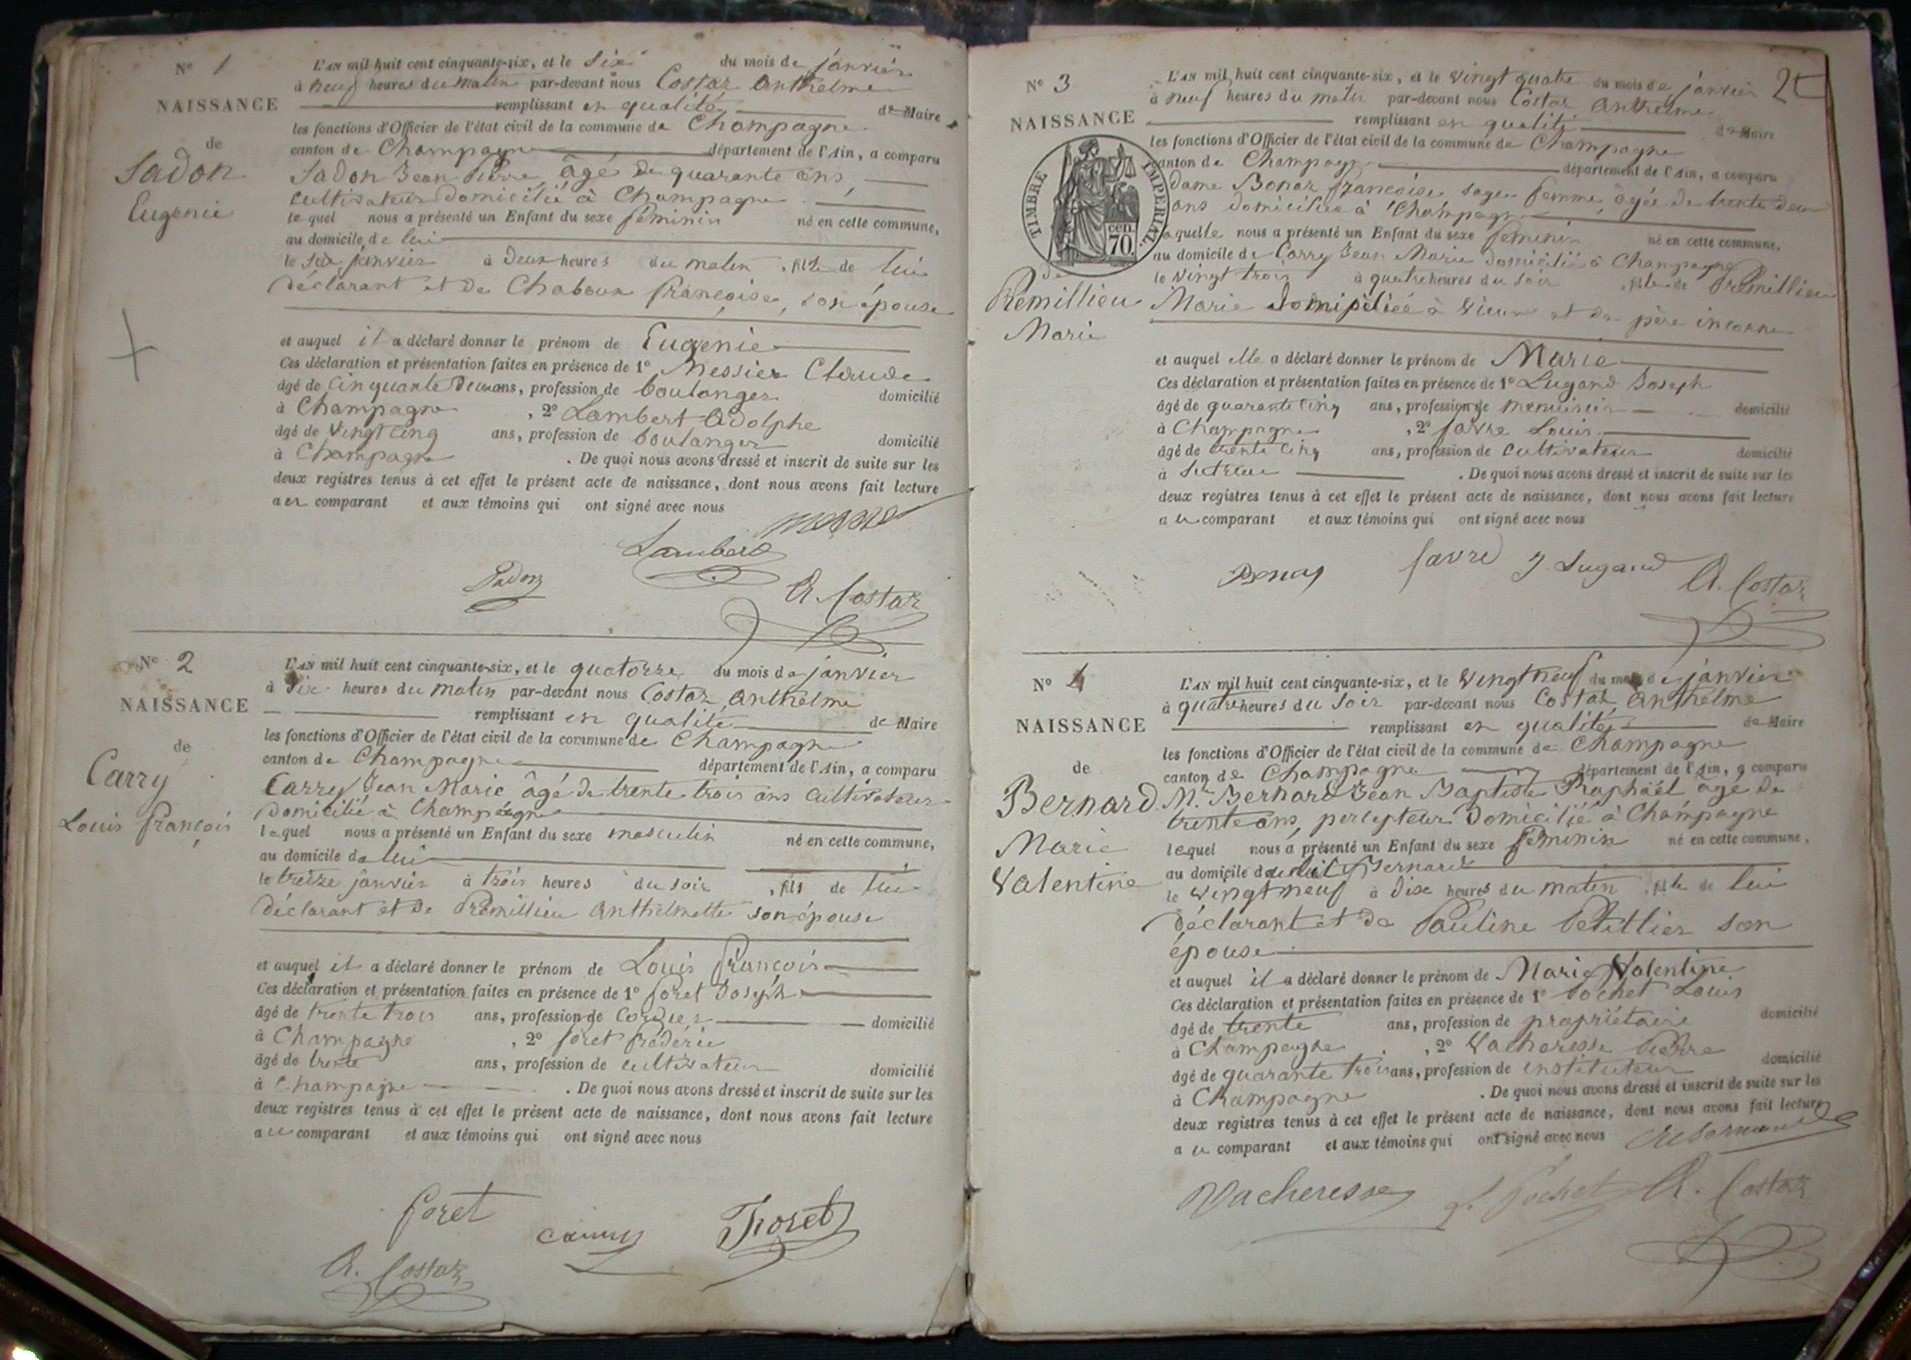 N° 1
NAISSANCE
de
Sadon
Eugenie
L'AN mil huit cent cinquante-six, et le six du mois de janvier
à neuf heures du matin par-devant nous Costaz Anthelme
remplissant en qualité de Maire
les fonctions d'Officier de l'état civil de la commune de Champagne
canton de Champagne département de l'Ain, a comparu
Sadon Jean Pierre âgé de quarante ans,
cultivateur domicilié à Champagne
lequel nous a présenté un Enfant du sexe féminin né en cette commune,
au domicile de lui
le six janvier à deux heures du matin, fille de lui
déclarant et de Chaboux françoise, son épouse
et auquel il a déclaré donner le prénom de Eugenie
Ces déclaration et présentation faites en présence de 1° Messier Claude
âgé de cinquante deux ans, profession de boulanger domicilié
à Champagne, 2° Lambert Adolphe
âgé de vingt cinq ans, profession de boulanger domicilié
à Champagne. De quoi nous avons dressé et inscrit de suite sur les
deux registres tenus à cet effet le présent acte de naissance, dont nous avons fait lecture
au comparant et aux témoins qui ont signé avec nous
Lambert
Sadon A. Costaz
N° 2
NAISSANCE
de
Carry
Louis françois
L'AN mil huit cent cinquante-six, et le quatorze du mois de janvier
à six heures du matin par-devant nous Costaz Anthelme
remplissant en qualité de Maire
les fonctions d'Officier de l'état civil de la commune de Champagne
canton de Champagne département de l'Ain, a comparu
Carry Jean Marie âgé de trente trois ans cultivateur
domicilié à Champagne
lequel nous a présenté un Enfant du sexe masculin né en cette commune,
au domicile de lui
le treize janvier à trois heures du soir, fils de lui
déclarant et de Prémillieu Anthelmette son épouse
et auquel il a déclaré donner le prénom de Louis françois
Ces déclaration et présentation faites en présence de 1° foret Joseph
âgé de trente trois ans, profession de cordier domicilié
à Champagne, 2° foret frédéric
âgé de trente ans, profession de cultivateur domicilié
à Champagne. De quoi nous avons dressé et inscrit de suite sur les
deux registres tenus à cet effet le présent acte de naissance, dont nous avons fait lecture
au comparant et aux témoins qui ont signé avec nous
foret Carry Foret
A. Costaz
N° 3
NAISSANCE
TIMBRE IMPERIAL
cen. 70
de
Prémillieu
Marie
L'AN mil huit cent cinquante-six, et le vingt quatre du mois de janvier
à neuf heures du matin par-devant nous Costaz Anthelme
remplissant en qualité de Maire
les fonctions d'Officier de l'état civil de la commune de Champagne
canton de Champagne département de l'Ain, a comparu
dame Bonaz françoise sage femme, âgée de trente deux
ans domiciliée à Champagne
laquelle nous a présenté un Enfant du sexe féminin né en cette commune,
au domicile de Carry Jean Marie domicilié à Champagne
le vingt trois à quatre heures du soir, fille de Prémillieu
Marie domiciliée à Vieu et de père inconnu
et auquel elle a déclaré donner le prénom de Marie
Ces déclaration et présentation faites en présence de 1° Lugand Joseph
âgé de quarante cinq ans, profession de menuisier domicilié
à Champagne, 2° favre Louis
âgé de trente cinq ans, profession de cultivateur domicilié
à Sutrieu. De quoi nous avons dressé et inscrit de suite sur les
deux registres tenus à cet effet le présent acte de naissance, dont nous avons fait lecture
au comparant et aux témoins qui ont signé avec nous
Bonaz favre J. Lugand A. Costaz
N° 4
NAISSANCE
de
Bernard
Marie
Valentine
L'AN mil huit cent cinquante-six, et le vingt neuf du mois de janvier
à quatre heures du soir par-devant nous Costaz Anthelme
remplissant en qualité de Maire
les fonctions d'Officier de l'état civil de la commune de Champagne
canton de Champagne département de l'Ain, a comparu
Mr. Bernard Jean Baptiste Raphaël âgé de
trente ans, percepteur domicilié à Champagne
lequel nous a présenté un Enfant du sexe féminin né en cette commune,
au domicile dudit Bernard
le vingt neuf à dix heures du matin, fille de lui
déclarant et de Pauline Petittier son
épouse
et auquel il a déclaré donner le prénom de Marie Valentine
Ces déclaration et présentation faites en présence de 1° Pochet Louis
âgé de trente ans, profession de propriétaire domicilié
à Champagne, 2° Vacheresse Pierre
âgé de quarante trois ans, profession de instituteur domicilié
à Champagne. De quoi nous avons dressé et inscrit de suite sur les
deux registres tenus à cet effet le présent acte de naissance, dont nous avons fait lecture
au comparant et aux témoins qui ont signé avec nous
Vacheresse L. Pochet A. Costaz